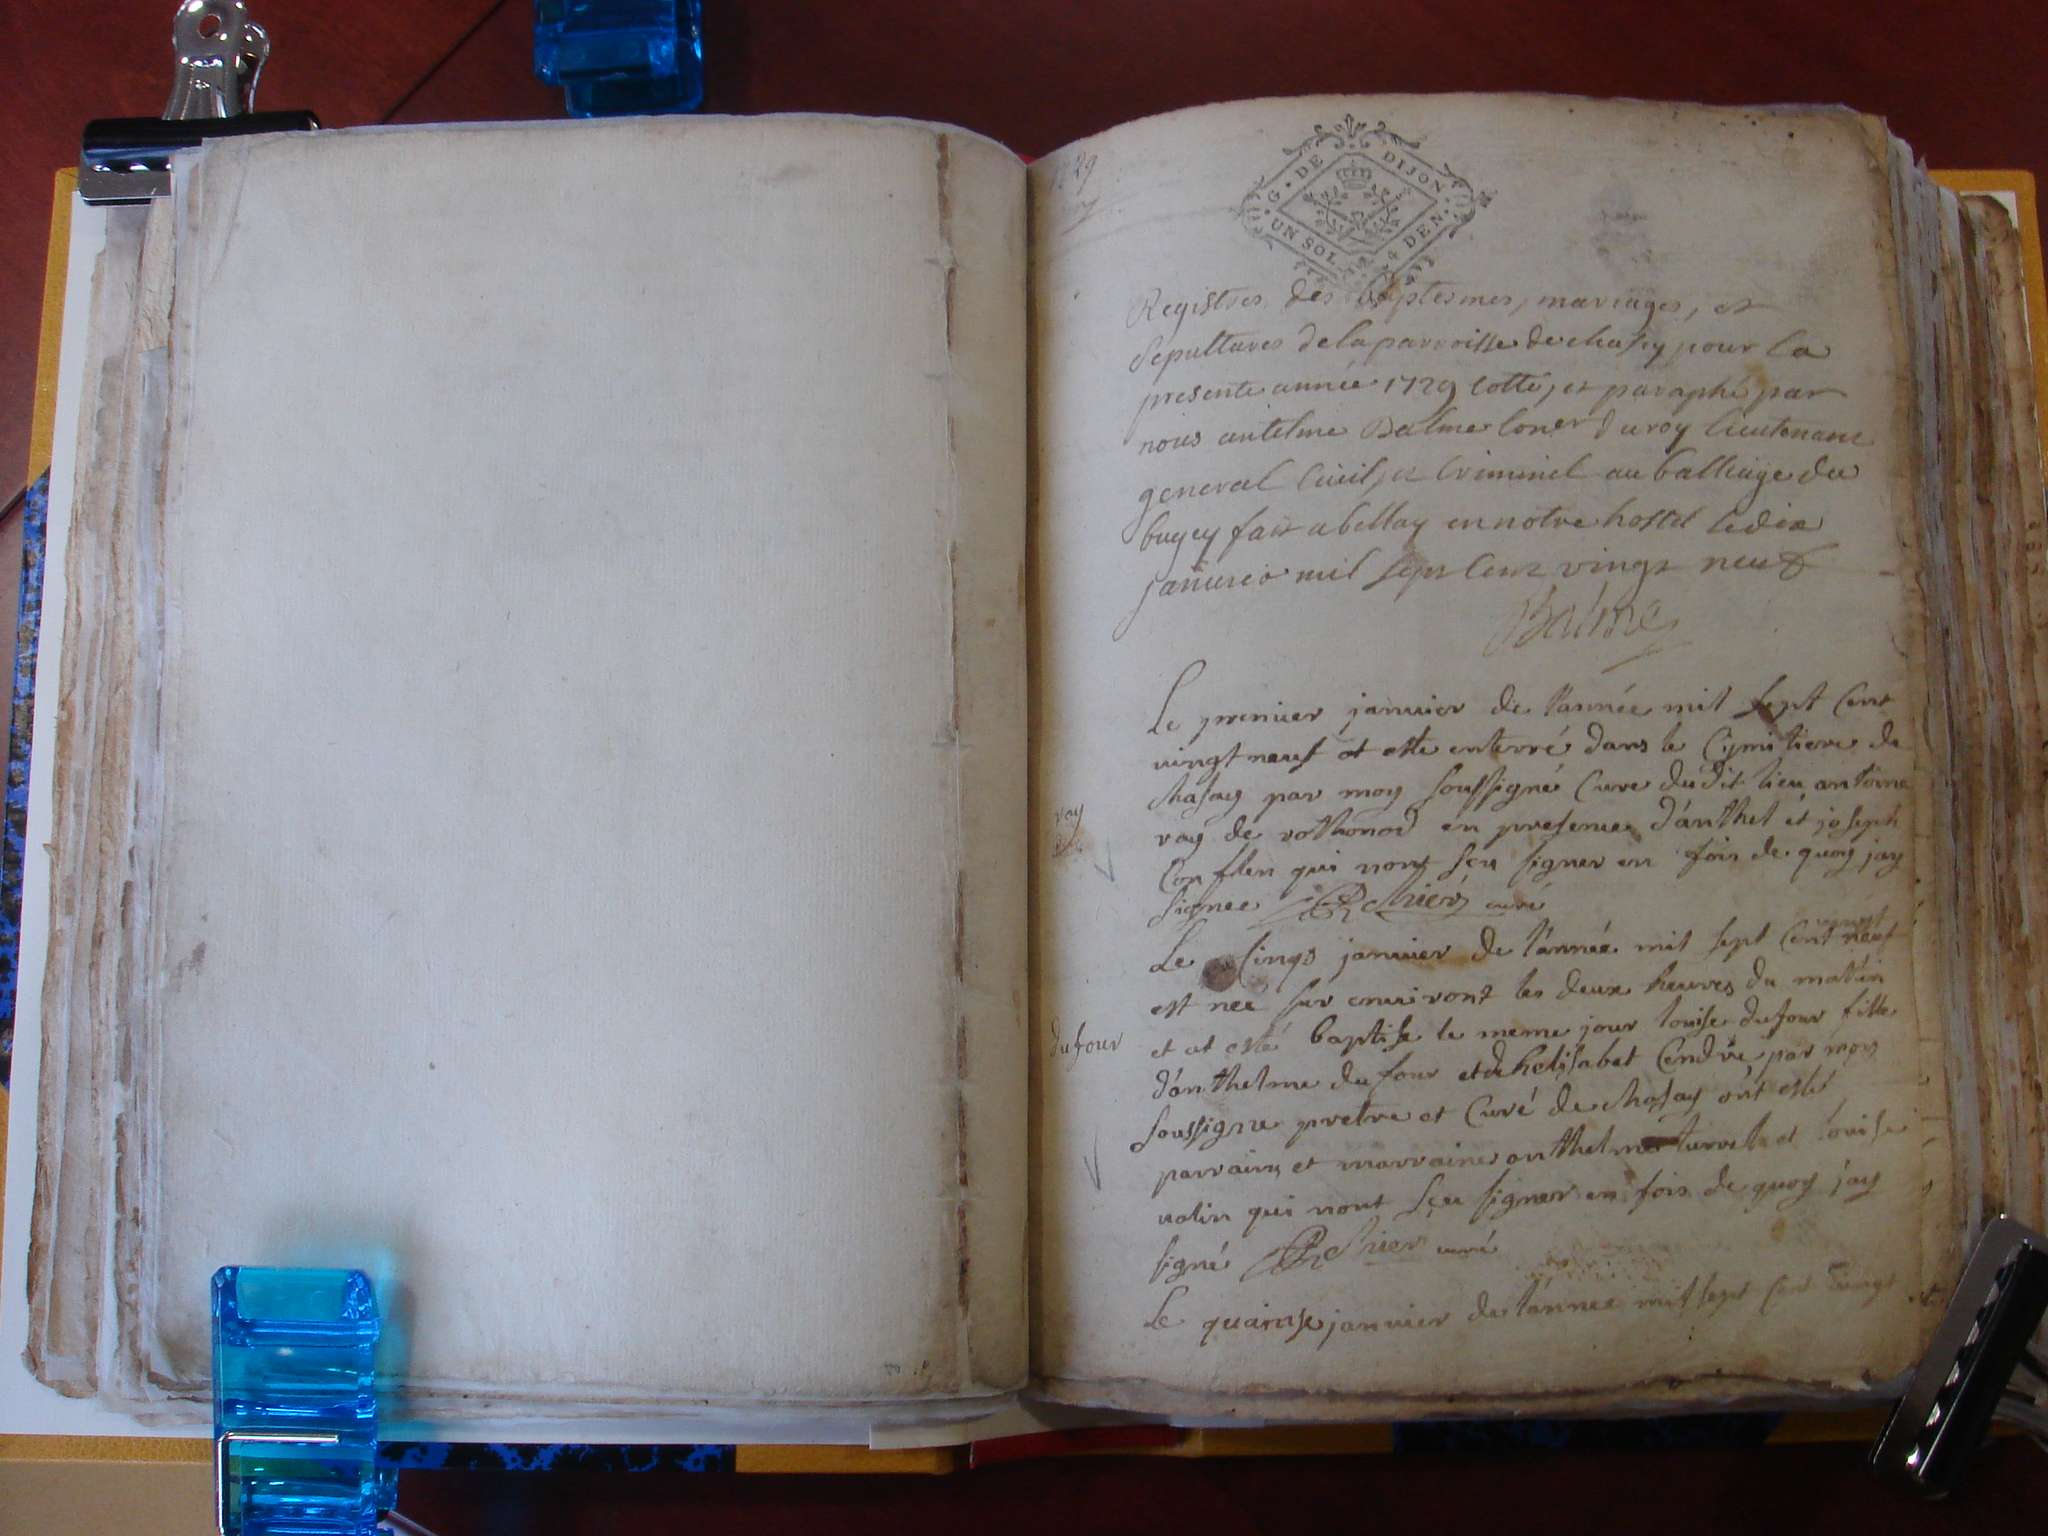 1729
G. DE DIJON
UN SOL 4 DEN.
Registres des baptesmes, mariages, et
sepultures de la parroisse de chasey pour la
presente année 1729 cotté, et paraphé par
nous antelme Balme Coner du roy lieutenant
general Civil, et Criminel au balliage du
bugey fait a bellay en notre hostel le dix
janvier mil sept cent vingt neuf
Balme
Le premier janvier de l'année mil sept cent
vingt neuf at este enterré dans le Cymitiere de
chasay par moy soussigné Cure dudit lieu antoine
roy
roy de rothonod en presence d'anthel et joseph
qui nont sçu signer en fois de quoy jay
signee curé
Le cinqs janvier de l'année mil sept cent vingt neuf
est neé sur environt les deux heures du matin
dufour
et at esté baptise le meme jour louise dufour fille
d'anthelme du four et dhelisabet Cendre, par moy
soussigne pretre et Curé de chasay ont esté
parrains et marraines anthelme et louise
qui nont sçu signer en fois de quoy jay
signé curé
Le quainse janvier de l'année mil sept cent vingt